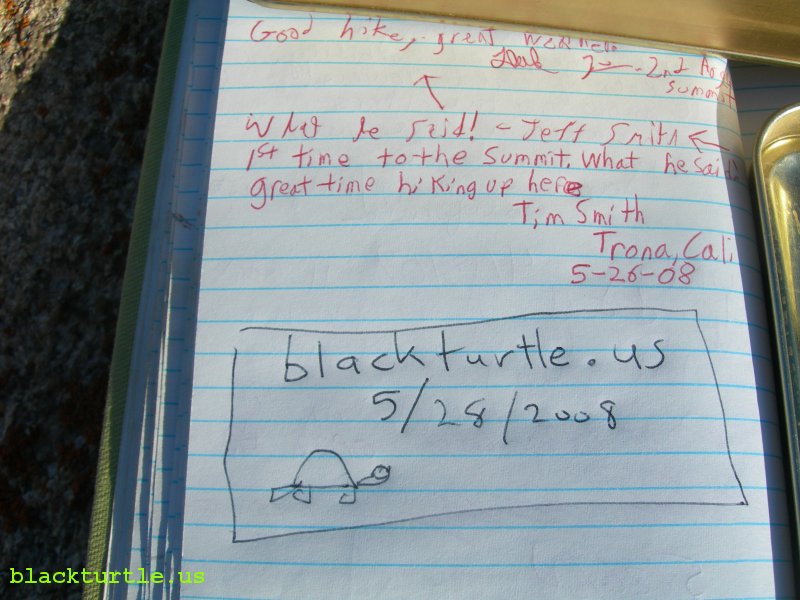 Good hike, great weather
2nd
summit
What he said! - Jeff Smith
1st time to the summit. What he said!
great time hiking up here
Tim Smith
Trona, Cali
5-26-08
blackturtle.us
5/28/2008
blackturtle.us